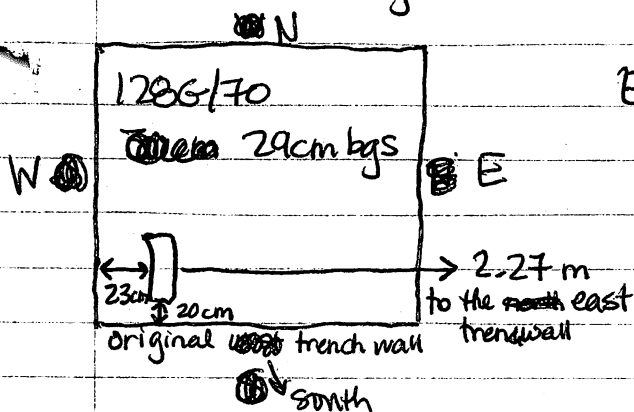 N
128G/70
29cm bgs
W
E
E
23cm
20cm
2.27 m
to the east
trenchwall
original trench wall
south